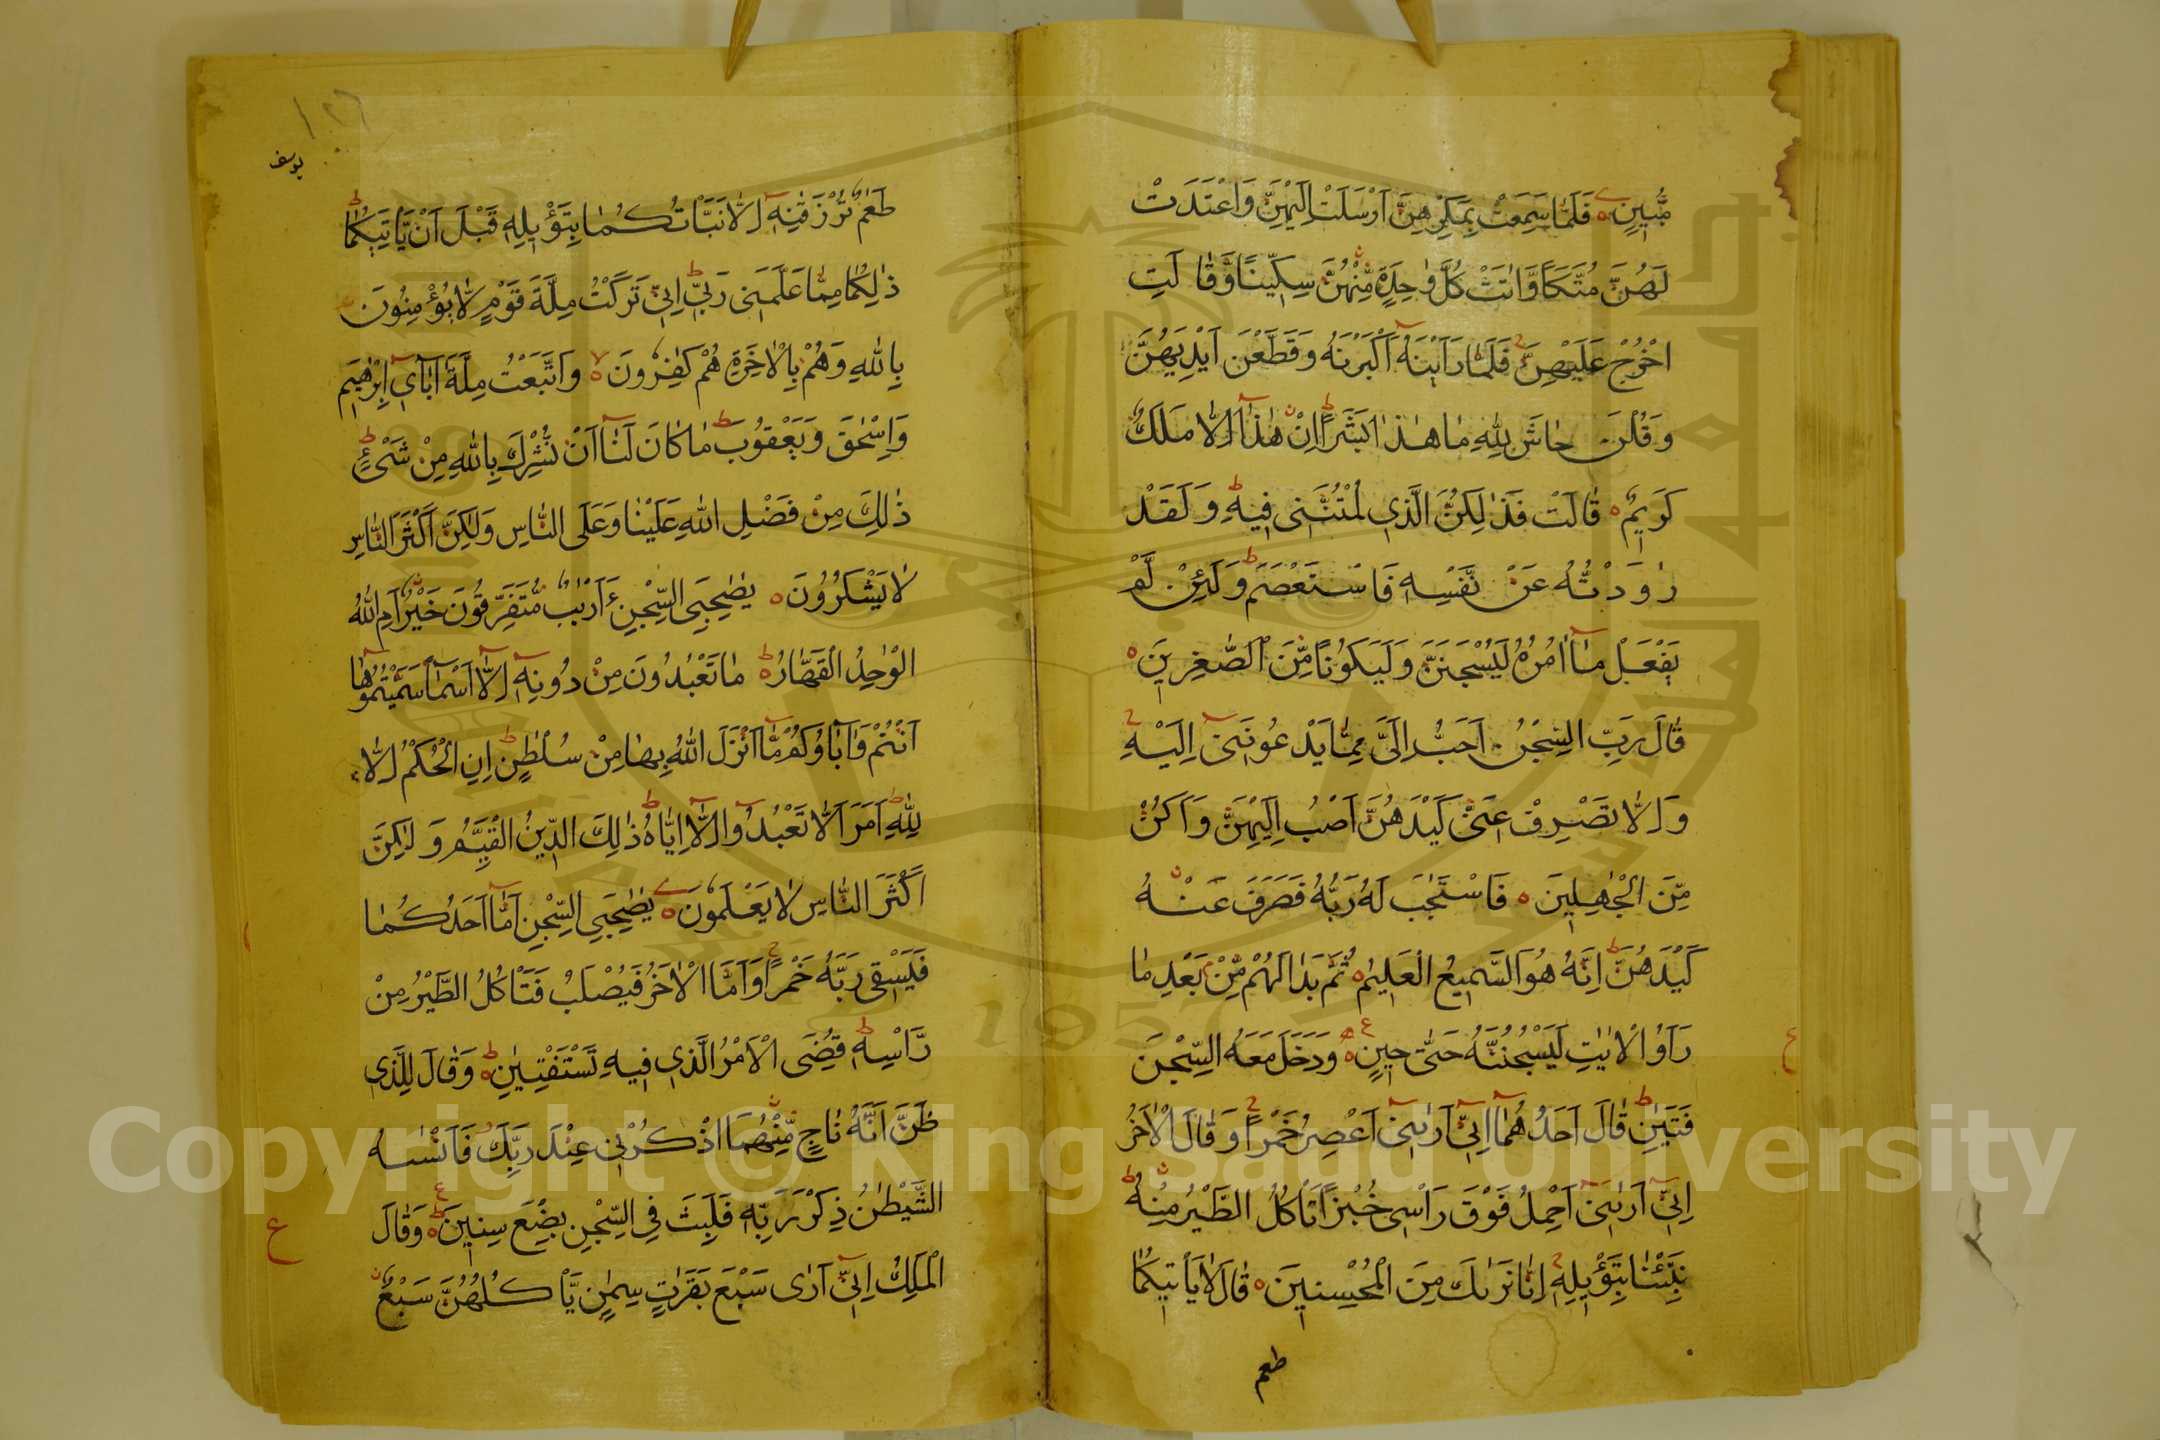 مُّبِينٍ ۝ فَلَمَّا سَمِعَتْ بِمَكْرِهِنَّ اَرْسَلَتْ اِلَيْهِنَّ وَاَعْتَدَتْ
لَهُنَّ مُتَّكَاً وَّاٰتَتْ كُلَّ وٰحِدَةٍ مِّنْهُنَّ سِكِّيْنًا وَّقَالَتِ
اخْرُجْ عَلَيْهِنَّ ج فَلَمَّا رَاَيْنَهٗ اَكْبَرْنَهُ وَقَطَّعْنَ اَيْدِيَهُنَّ
وَقُلْنَ حَاشَ لِلّٰهِ مَا هٰذَا بَشَرًا ط اِنْ هٰذَا اِلَّا مَلَكٌ
كَرِيْمٌ ۝ قَالَتْ فَذٰلِكُنَّ الَّذِي لُمْتُنَّنِي فِيهِ ط وَلَقَدْ
رَاوَدْتُّهُ عَنْ نَّفْسِهِ فَاسْتَعْصَمَ ط وَلَئِنْ لَّمْ
يَفْعَلْ مَا اٰمُرُهُ لَيُسْجَنَنَّ وَلَيَكُوْنًا مِّنَ الصّٰغِرِيْنَ ۝
قَالَ رَبِّ السِّجْنُ اَحَبُّ اِلَيَّ مِمَّا يَدْعُوْنَنِي اِلَيْهِ ج
وَاِلَّا تَصْرِفْ عَنِّي كَيْدَهُنَّ اَصْبُ اِلَيْهِنَّ وَاَكُنْ
مِّنَ الْجٰهِلِيْنَ ۝ فَاسْتَجَابَ لَهُ رَبُّهُ فَصَرَفَ عَنْهُ
كَيْدَهُنَّ ط اِنَّهُ هُوَ السَّمِيعُ الْعَلِيمُ ۝ ثُمَّ بَدَا لَهُمْ مِّنْ بَعْدِ مَا
رَاَوُا الْاٰيٰتِ لَيَسْجُنُنَّهُ حَتّٰى حِينٍ ۝ ع وَدَخَلَ مَعَهُ السِّجْنَ
فَتَيٰنِ ط قَالَ اَحَدُهُمَا اِنِّي اَرٰىنِي اَعْصِرُ خَمْرًا ج وَقَالَ الْاٰخَرُ
اِنِّي اَرٰىنِي اَحْمِلُ فَوْقَ رَاْسِي خُبْزًا تَاْكُلُ الطَّيْرُ مِنْهُ ط
نَبِّئْنَا بِتَاْوِيلِهِ ج اِنَّا نَرٰىكَ مِنَ الْمُحْسِنِيْنَ ۝ قَالَ لَا يَاْتِيْكُمَا
طعم
ع
١٢٦
يوسف
طَعَامٌ تُرْزَقٰنِهِ اِلَّا نَبَّاْتُكُمَا بِتَاْوِيلِهِ قَبْلَ اَنْ يَّاْتِيَكُمَا ط
ذٰلِكُمَا مِمَّا عَلَّمَنِي رَبِّي ط اِنِّي تَرَكْتُ مِلَّةَ قَوْمٍ لَّا يُؤْمِنُونَ
بِاللّٰهِ وَهُمْ بِالْاٰخِرَةِ هُمْ كٰفِرُونَ ۝ لا وَاتَّبَعْتُ مِلَّةَ اٰبَآئِي اِبْرٰهِيْمَ
وَاِسْحٰقَ وَيَعْقُوبَ ط مَا كَانَ لَنَا اَنْ نُّشْرِكَ بِاللّٰهِ مِنْ شَيْءٍ ط
ذٰلِكَ مِنْ فَضْلِ اللّٰهِ عَلَيْنَا وَعَلَى النَّاسِ وَلٰكِنَّ اَكْثَرَ النَّاسِ
لَا يَشْكُرُوْنَ ۝ يٰصٰحِبَيِ السِّجْنِ ءَاَرْبَابٌ مُّتَفَرِّقُونَ خَيْرٌ اَمِ اللّٰهُ
الْوٰحِدُ الْقَهَّارُ ۝ ط مَا تَعْبُدُونَ مِنْ دُونِهِ اِلَّا اَسْمَآءً سَمَّيْتُمُوْهَا
اَنْتُمْ وَاٰبَاؤُكُمْ مَّا اَنْزَلَ اللّٰهُ بِهَا مِنْ سُلْطٰنٍ ط اِنِ الْحُكْمُ اِلَّا
لِلّٰهِ ط اَمَرَ اَلَّا تَعْبُدُوْا اِلَّا اِيَّاهُ ط ذٰلِكَ الدِّينُ الْقَيِّمُ وَلٰكِنَّ
اَكْثَرَ النَّاسِ لَا يَعْلَمُونَ ۝ يٰصٰحِبَيِ السِّجْنِ اَمَّا اَحَدُكُمَا
فَيَسْقِي رَبَّهُ خَمْرًا ج وَاَمَّا الْاٰخَرُ فَيُصْلَبُ فَتَاْكُلُ الطَّيْرُ مِنْ
رَّاْسِهِ ط قُضِيَ الْاَمْرُ الَّذِي فِيهِ تَسْتَفْتِيٰنِ ۝ ط وَقَالَ لِلَّذِي
ظَنَّ اَنَّهُ نَاجٍ مِّنْهُمَا اذْكُرْنِي عِنْدَ رَبِّكَ فَاَنْسٰىهُ
الشَّيْطٰنُ ذِكْرَ رَبِّهِ فَلَبِثَ فِي السِّجْنِ بِضْعَ سِنِيْنَ ۝ ط ع وَقَالَ
الْمَلِكُ اِنِّي اَرٰى سَبْعَ بَقَرٰتٍ سِمَانٍ يَّاْكُلُهُنَّ سَبْعٌ
ع
1957
Copyright © King Saud University